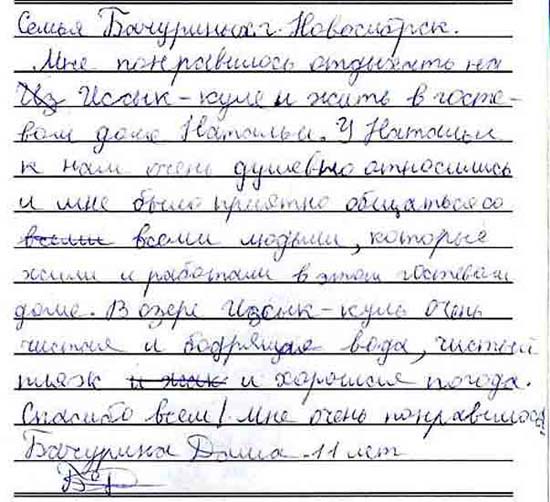 Семья Бачуриных г. Новосибирск.
Мне понравилось отдыхать на
Из Иссык-куле и жить в госте-
вом доме Натальи. У Натальи
к нам очень душевно относились
и мне было приятно общаться со
всеми всеми людьми, которые
жили и работали в этом гостевом
доме. В озере Иссык-куль очень
чистая и бодрящая вода, чистый
пляж и жак и хорошая погода.
Спасибо всем! Мне очень понравилось!
Бачурина Даша 11 лет